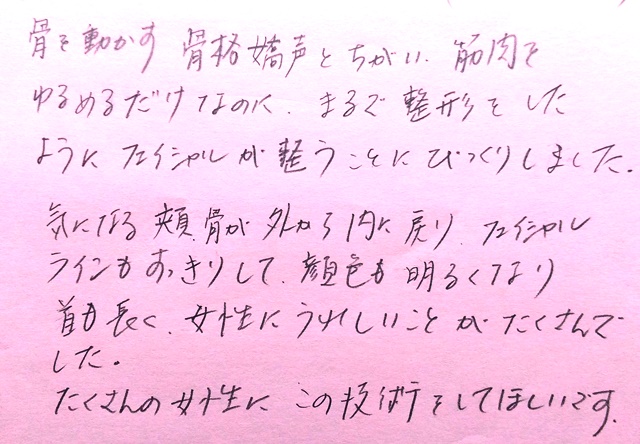 骨を動かす 骨格嬌声とちがい、筋肉を
ゆるめるだけなのに、まるで整形をした
ようにフェイシャルが整うことにびっくりしました。
気になる頬骨が外から内に戻り、フェイシャル
ラインもすっきりして、顔色も明るくなり
首も長く、女性にうれしいことがたくさんで
した。
たくさんの女性にこの技術をしてほしいです。